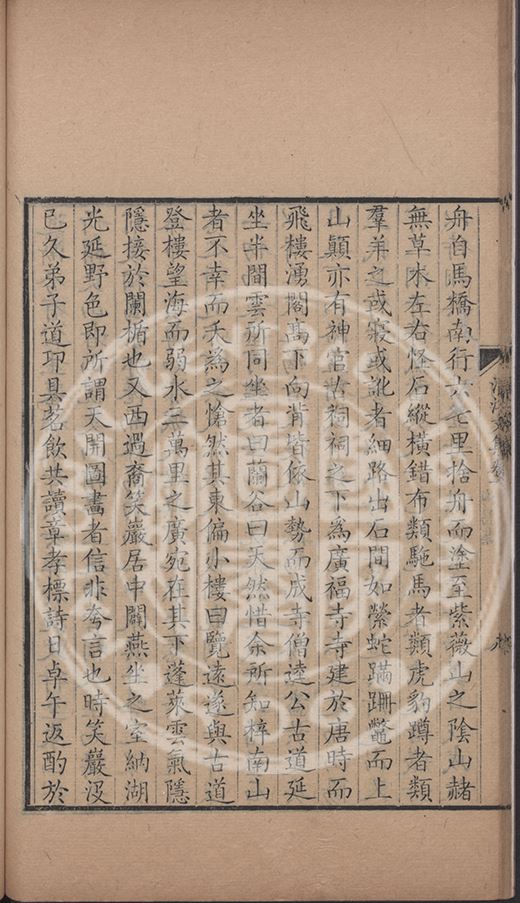 舟自馬橋南行六七里捨舟而塗至紫薇山之陰山赭
無草木左右怪石縱橫錯布類駞馬者類虎豹蹲者類
羣羊之或寢或訛者細路出石間如縈蛇蹣跚鼈而上
山顛亦有神官故祠祠之下為廣福寺寺建於唐時而
飛樓湧閣髙下向背皆依山勢而成寺僧逵公古道延
坐半間雲所同坐者曰蘭谷曰天然惜余所知梓南山
者不幸而夭為之愴然其東偏小樓曰覽遠遂與古道
登樓望海而弱水三萬里之廣宛在其下蓬萊雲氣隱
隱接於闌楯也又西過裔笑巖居中闢燕坐之室納湖
光延野色即所謂天開圖畫者信非夸言也時笑巖沒
已久弟子道卭具茗飲共讀章孝標詩日卓午返酌於